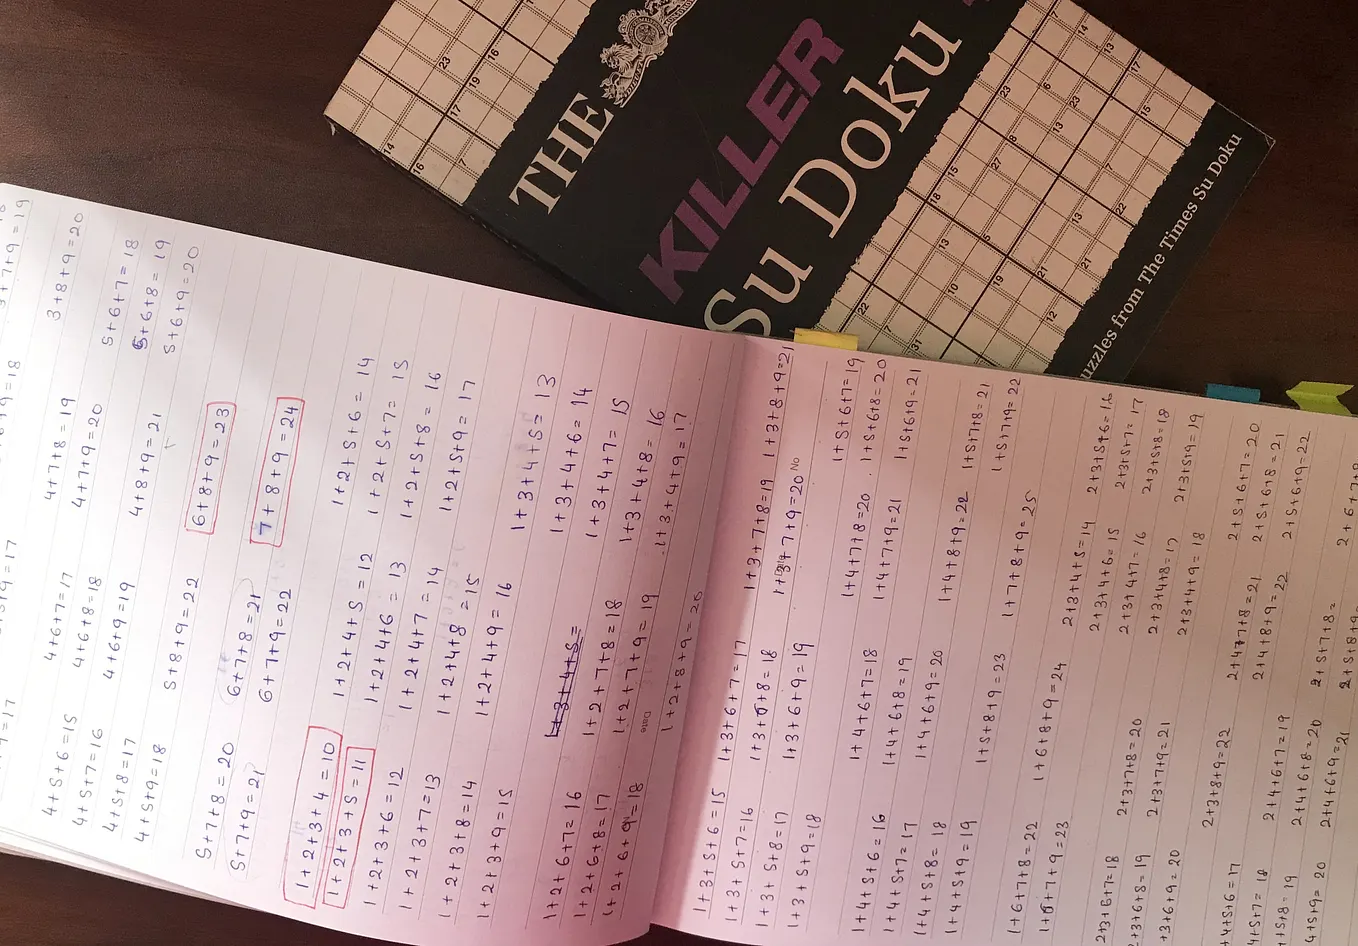 THE
KILLER
Su Doku
uzzles from The Times Su Doku
3+7+9=19
4+5+6=15 4+6+7=17 4+7+8=19 3+8+9=20
4+5+7=16 4+6+8=18 4+7+9=20 5+6+7=18
4+5+8=17 4+6+9=19 4+8+9=21 5+6+8=19
4+5+9=18 5+6+9=20
5+7+8=20 5+8+9=22 6+8+9=23
5+7+9=21 6+7+8=21 7+8+9=24
6+7+9=22
1+2+3+4=10 1+2+4+5=12 1+2+5+6=14
1+2+3+5=11 1+2+4+6=13 1+2+5+7=15
1+2+3+6=12 1+2+4+7=14 1+2+5+8=16
1+2+3+7=13 1+2+4+8=15 1+2+5+9=17
1+2+3+8=14 1+2+4+9=16
1+2+3+9=15
1+3+4+5= 1+3+4+5=13
1+2+6+7=16 1+2+7+8=18 1+3+4+6=14
1+2+6+8=17 1+2+7+9=19 1+3+4+7=15
1+2+6+9=18 1+3+4+8=16
Date 1+2+8+9=20 1+3+4+9=17
1+3+5+6=15 1+3+6+7=17 1+3+7+8=19 1+3+8+9=21
1+3+5+7=16 1+3+6+8=18 1+3+7+9=20 No
1+3+5+8=17 1+3+6+9=19
1+3+5+9=18
1+4+5+6=16 1+4+6+7=18 1+4+7+8=20 1+5+6+7=19
1+4+5+7=17 1+4+6+8=19 1+4+7+9=21 1+5+6+8=20
1+4+5+8=18 1+4+6+9=20 1+5+6+9=21
1+4+5+9=19 1+4+8+9=22
1+5+8+9=23 1+5+7+8=21
1+6+7+8=22 1+6+8+9=24 1+7+8+9=25 1+5+7+9=22
1+6+7+9=23
2+3+4+5=14 2+3+5+6=16
2+3+6+7=18 2+3+7+8=20 2+3+4+6=15 2+3+5+7=17
2+3+6+8=19 2+3+7+9=21 2+3+4+7=16 2+3+5+8=18
+3+6+9=20 2+3+4+8=17 2+3+5+9=19
2+3+8+9=22 2+3+4+9=18
+4+5+6=17 2+4+6+7=19 2+4+7+8=21 2+5+6+7=20
4+5+7=18 2+4+6+8=20 2+4+8+9=22 2+5+6+8=21
+5+8=19 2+4+6+9=21 2+5+6+9=22
4+5+9=20 2+5+7+8=